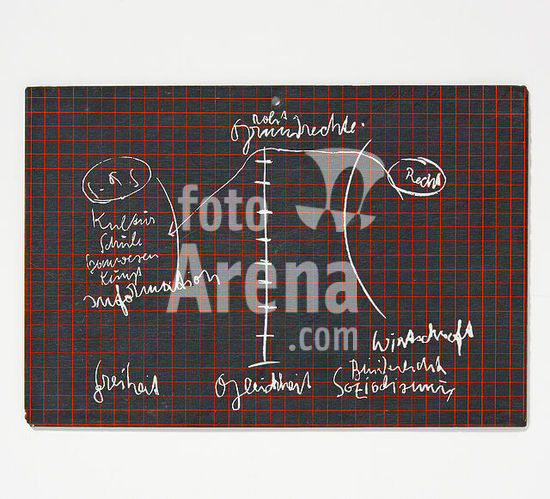 Grundrechte.
Recht
Kultur
Schule
Kunst
Information
Wirtschaft
Freiheit
Gleichheit
Sozialismus
foto
Arena
.com